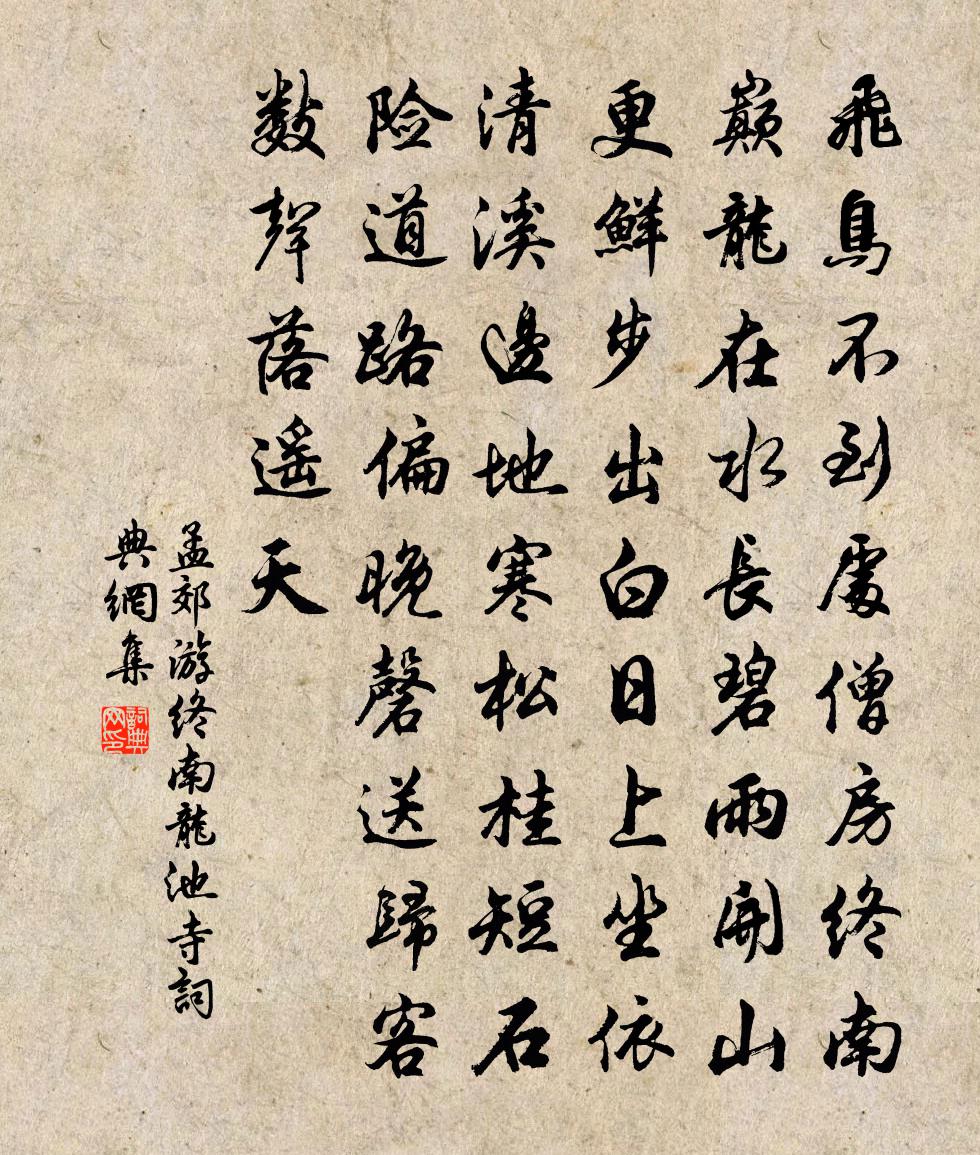 飛鳥不到處僧房終南
巔龍在水長碧雨開山
更鮮步出白日上坐依
清溪邊地寒松桂短石
险道路偏晚磬送歸客
数聲落遥天
孟郊游終南龍池寺詞
典網集
詞典
网印